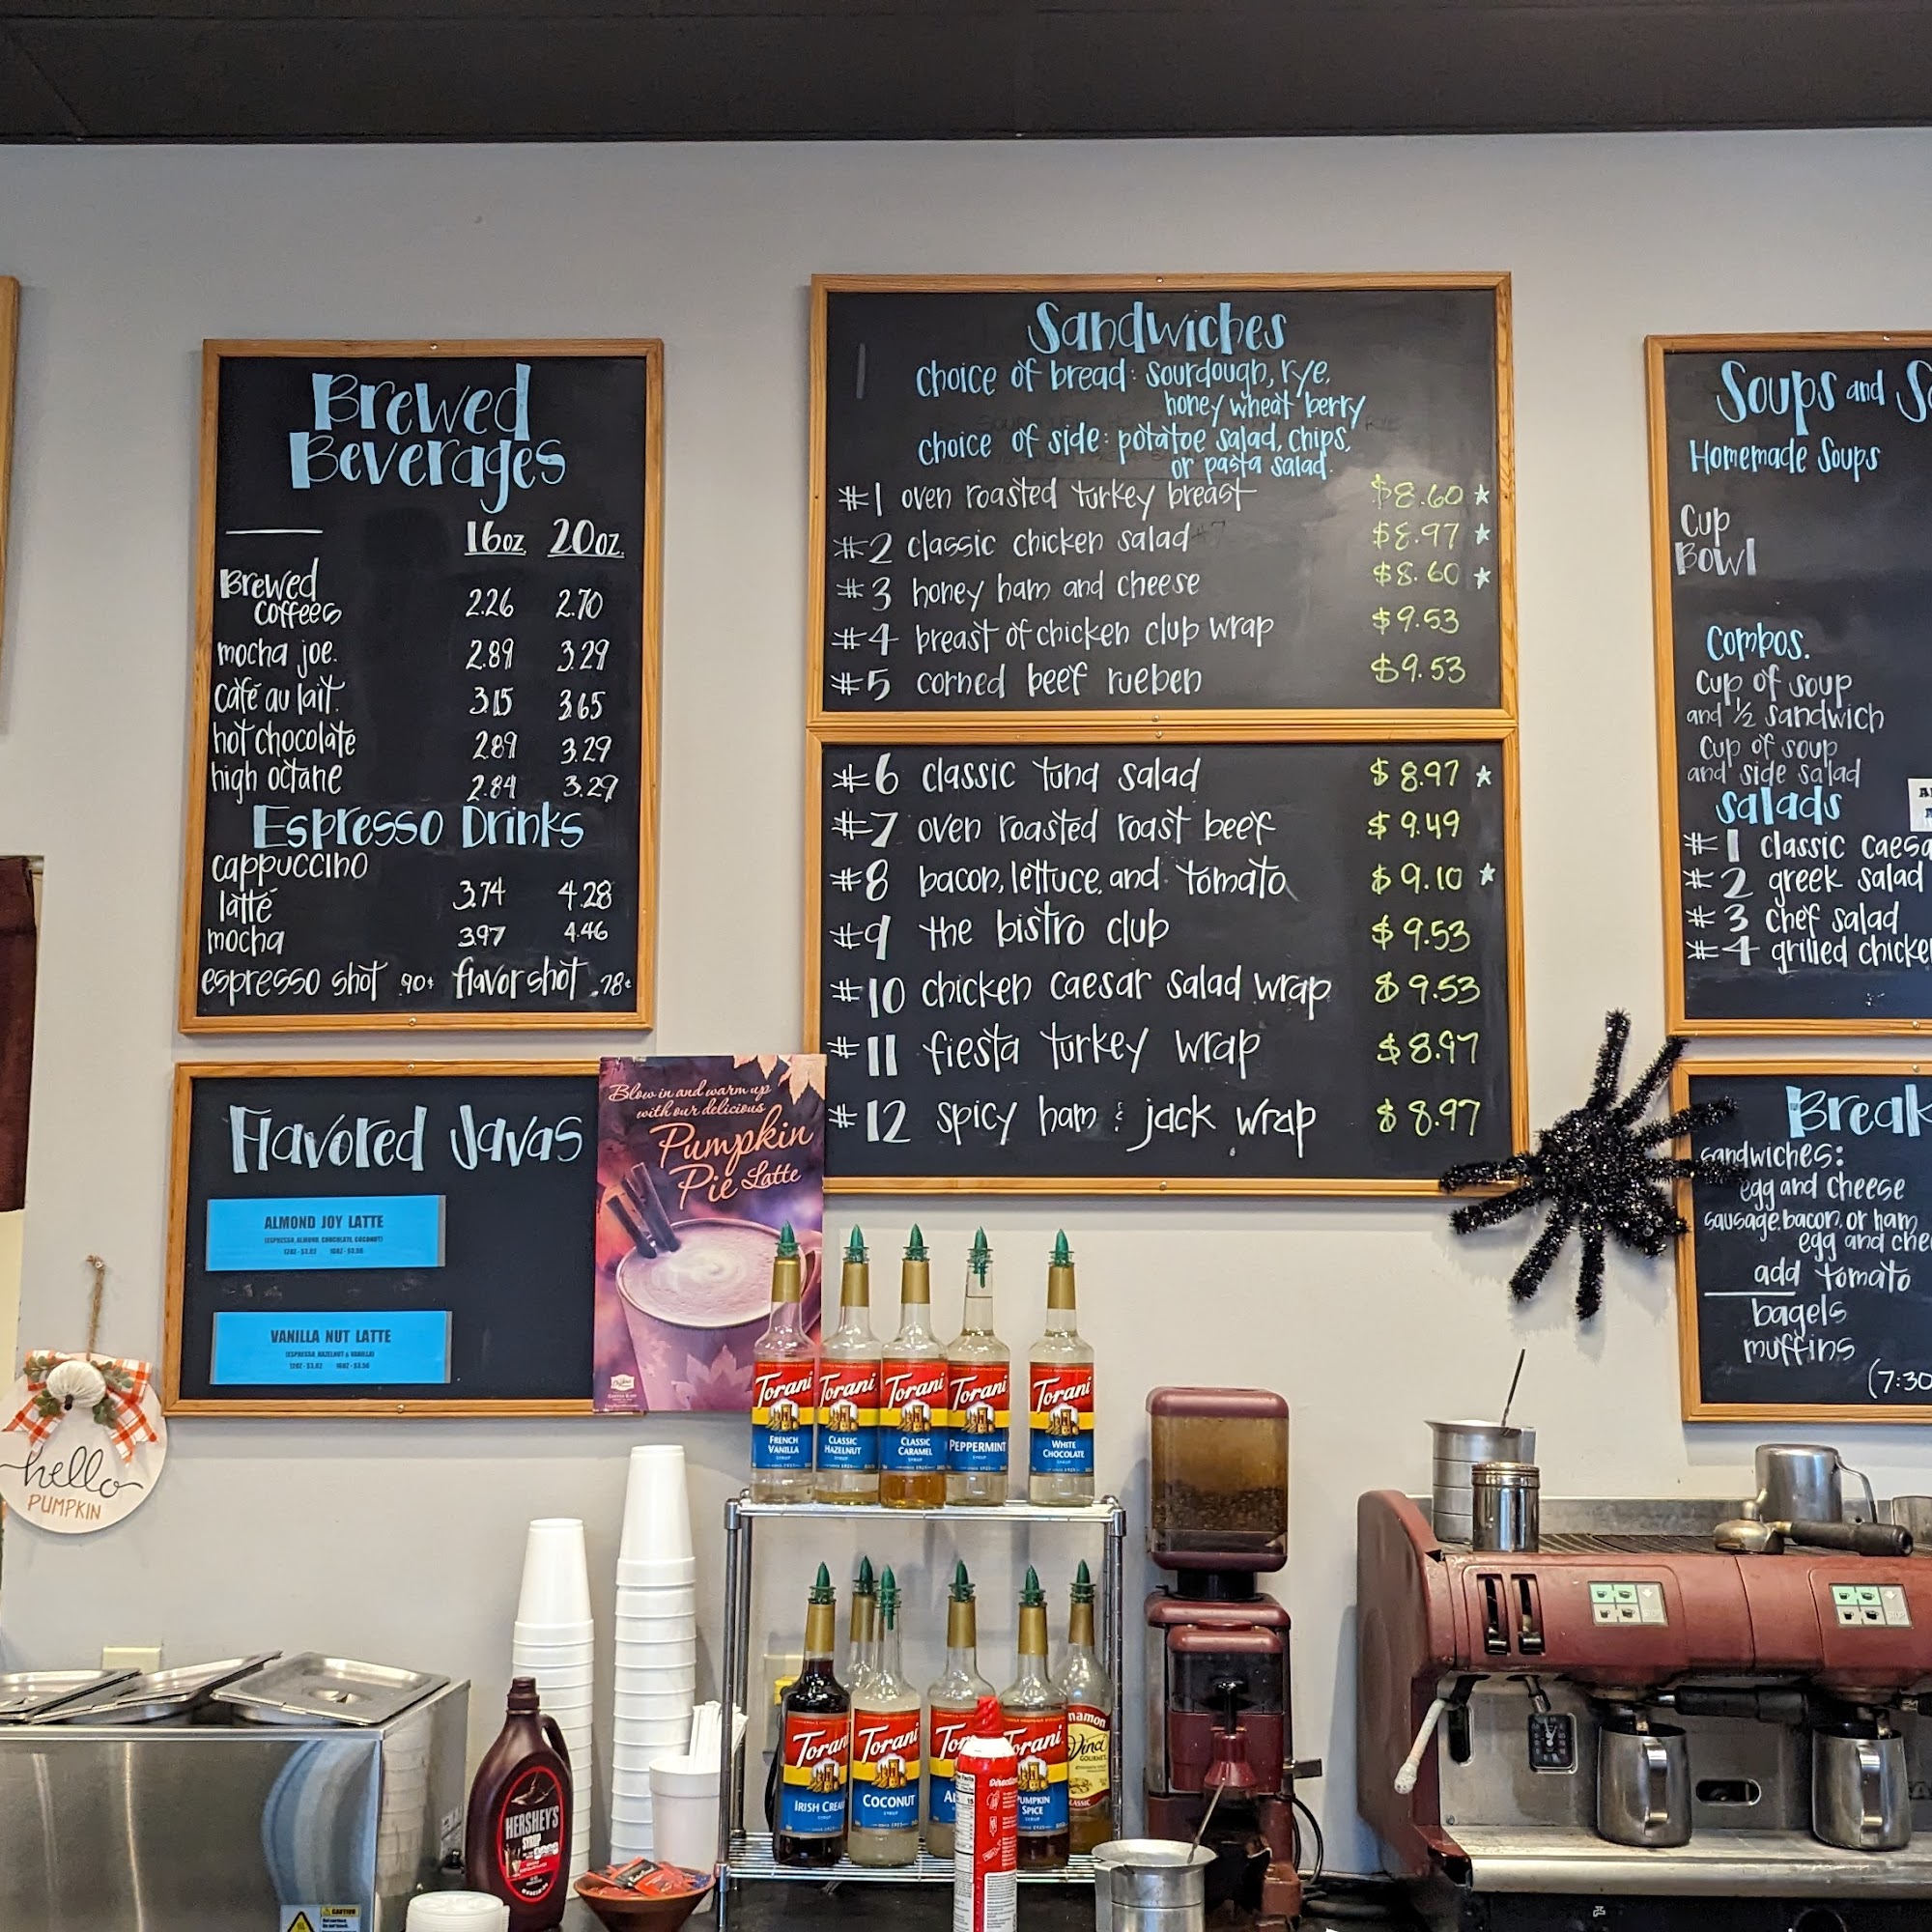 Brewed
Beverages
16oz. 20oz.
Brewed
coffees 2.26 2.70
mocha joe. 2.89 3.29
café au lait. 3.15 3.65
hot chocolate 2.89 3.29
high octane 2.84 3.29
Espresso Drinks
cappuccino
latté 3.74 4.28
mocha 3.97 4.46
espresso shot .90¢ flavor shot .78¢
Flavored Javas
ALMOND JOY LATTE
(ESPRESSO, ALMOND, CHOCOLATE, COCONUT)
VANILLA NUT LATTE
(ESPRESSO, HAZELNUT & VANILLA)
Blow in and warm up
with our delicious
Pumpkin
Pie Latte
Sandwiches
choice of bread: sourdough, rye,
honey wheat berry
choice of side: potatoe salad, chips,
or pasta salad.
#1 oven roasted turkey breast $8.60 ★
#2 classic chicken salad $8.97 ★
#3 honey ham and cheese $8.60 ★
#4 breast of chicken club wrap $9.53
#5 corned beef rueben $9.53
#6 classic tuna salad $8.97 ★
#7 oven roasted roast beef $9.49
#8 bacon, lettuce, and tomato $9.10 ★
#9 the bistro club $9.53
#10 chicken caesar salad wrap $9.53
#11 fiesta turkey wrap $8.97
#12 spicy ham & jack wrap $8.97
Soups and S
Homemade Soups
Cup
Bowl
Combos.
Cup of soup
and ½ sandwich
Cup of soup
and side salad
Salads
#1 classic caesa
#2 greek salad
#3 chef salad
#4 grilled chicke
Break
sandwiches:
egg and cheese
sausage, bacon, or ham
egg and chee
add tomato
bagels
muffins
(7:30
hello
PUMPKIN
Torani
FRENCH
VANILLA
SYRUP
Torani
CLASSIC
HAZELNUT
SYRUP
Torani
CLASSIC
CARAMEL
SYRUP
Torani
PEPPERMINT
SYRUP
Torani
WHITE
CHOCOLATE
SYRUP
Torani
IRISH CREA
SYRUP
Torani
COCONUT
SYRUP
Tor
Torani
PUMPKIN
SPICE
SYRUP
namon
Vinci
GOURMET
CLASSIC
HERSHEY'S
SYRUP
CAUTION